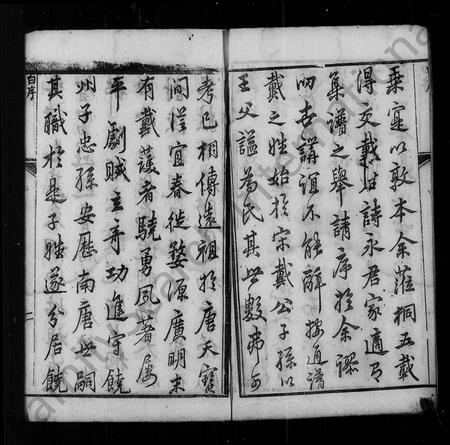 乘寔以敦本余蒞桐五載
得交戴姑詩永君家適有
集譜之舉請序於余謬
叨世講誼不能辭按通譜
戴之姓始於宋戴公子孫以
王父諡為氏其世數弗可
考已相傳遠祖於唐天寶
間從宜春徙婺源廣明末
有戴護者驍勇風著屢
平劇賊立奇功進守饒
州子忠孫安歷南唐世嗣
其職於是子姓遂分居饒
白序
二